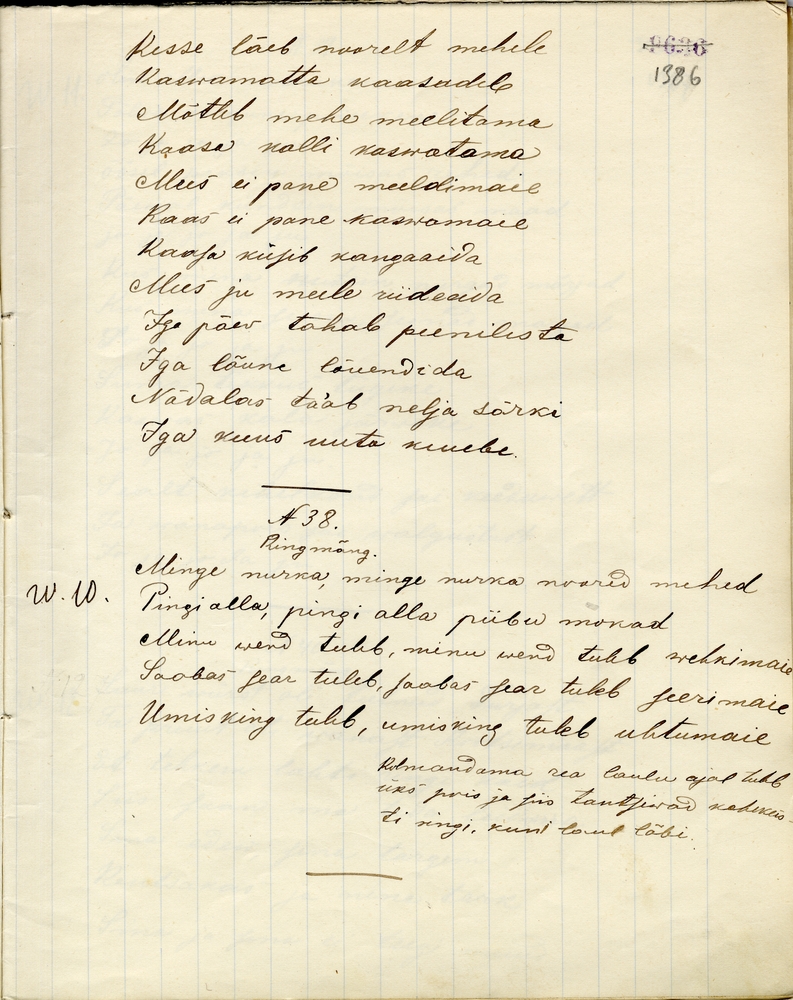 9636
1386
Kesse läeb noorelt mehele
Kaswamatta kaasadele
Mõtleb mehe meelitama
Kaasa kalli kaswatama
Mees ei pane meeldimaie
Kaas ei pane kaswamaie
Kaasa küsib kangaaida
Mees ju meele riideaida
Iga päew tahab peenikesta
Iga lõune lõuendida
Nädalas tääb nelja särki
Iga kuus uuta kuube.
N 38.
Ringmäng.
W. W.
Minge nurka, minge nurka noored mehed
Pingi alla, pingi alla piibu mokad
Minu wend tuleb, minu wend tuleb wehkimaie
Saabas sear tuleb, saabas sear tuleb seerimaie
Umisking tuleb, umisking tuleb uhtumaie
Kolmandama rea laulu ajal tuleb
üks pois ja siis tantsiwad kahekes-
ti ringi, kuni laul läbi.